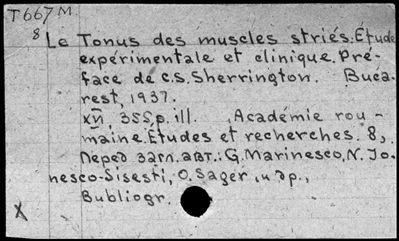 T667M
8 Le Tonus des muscles striés. Étude
expérimentale et clinique. Pré-
face de C.S. Sherrington. Buca-
rest, 1937.
XVI, 355, p. ill. , Académie rou-
maine. Études et recherches. 8,
Перед загл. авт.: G. Marinesco, N. Jo-
nesco-Sisesti, O. Sager, и др.,
Bubliogr.
X